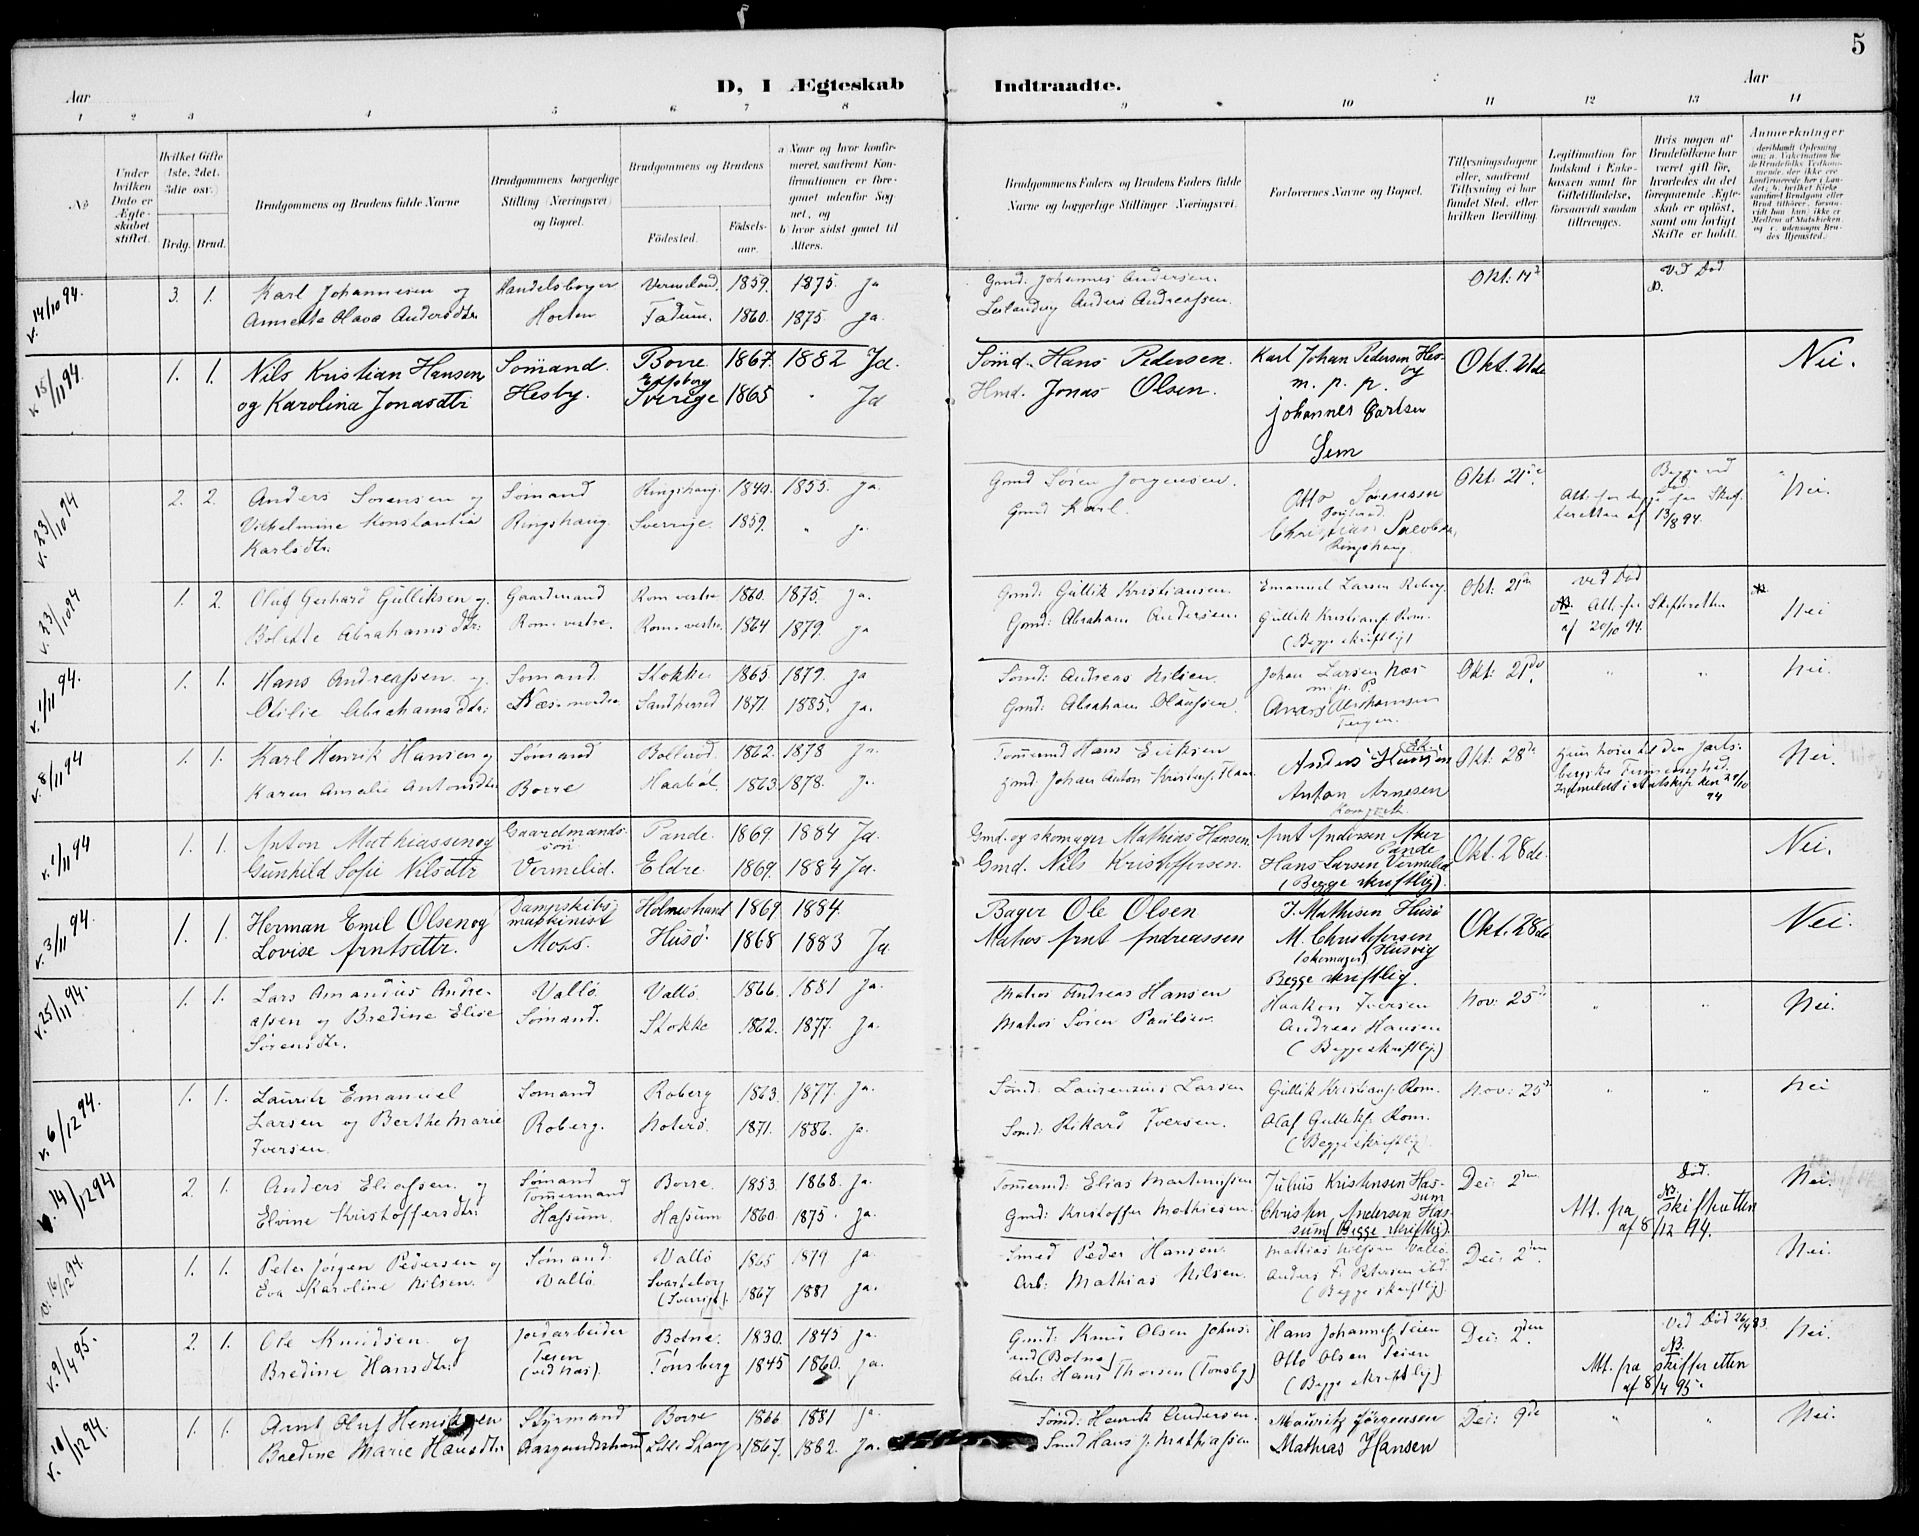 5
D, I Ægteskab Indtraadte.
Aar Aar
1 2 3 4 5 6 7 8 9 10 11 12 13 14
№
Under hvilken Dato er Ægteskabet stiftet.
Hvilket Gifte (1ste, 2det, 3die osv.)
Brdg. Brud.
Brudgommens og Brudens fulde Navne
Brudgommens borgerlige Stilling (Næringsvei) og Bopæl.
Brudgommens og Brudens
Fødested. Fødselsaar.
a Naar og hvor konfirmeret, saafremt Konfirmationen er foregaaet udenfor Sognet, og
b hvor sidst gaaet til Alters.
Brudgommens Faders og Brudens Faders fulde Navne og borgerlige Stillinger (Næringsvei).
Forlovernes Navne og Bopæl.
Tillysningsdagene eller, saafremt Tillysning ei har fundet Sted, efter hvilken Bevilling.
Legitimation for Indskud i Enkekassen samt for Giftetilladelse, forsaavidt saadan tiltrænges.
Hvis nogen af Brudefolkene har været gift før, hvorledes da det foregaaende Ægteskab er opløst, samt om lovligt Skifte er holdt.
Anmerkninger
v. 14/10 94. 3. 1. Karl Johannesen og Handelsborger 1859. 1875. Ja Gmd: Johannes Andersen. Okt: 14 Ved Død
Andersdtr. Horten Fadum. 1860. 1875. Ja. Anders Andreassen. N.
v. 15/11 94. 1. 1. Nils Kristian Hansen Sømand. Borre 1867. 1882 Ja. Sømd. Hans Pedersen. Karl Johan Pedersen Hesby Okt. 21de Nei.
og Karolina Jonasdtr Hesby. Sverige 1865 " Ja Hmd. Jonas Olsen. m. p. p.
Johannes Carlsen
Sem
v. 23/10 94 2. 2. Anders Sørensen og Sømand Ringshaug. 1855. Ja. Gmd Søren Jørgensen. Otto Sørensen Okt: 21de Begge ved Død " Nei.
Vilhelmine Konstantia Ringshaug Sverrige. 1859. " ja. Gmd Karl. Christian
Karlsdtr. Ringshaug. 13/8 94.
v. 23/10 94 1. 2. Oluf Gerhard Gulliksen og Gaardmand Rom vestre 1860. 1875. Ja. Gmd: Gullik Kristiansen. Emanuel Larsen Roberg Okt: 21de ved Død Nei
Abrahamsdtr: Rom vestre. Rom vestre. 1864 1879. ja Gmd: Abraham Andersen. Gullik Kristians. Rom. N. Att. fra Skifteretten
(Begge skriftlig) af 20/10 94.
v. 1/11 94. 1. 1. Hans Andreassen og Sømand. Stokke 1865 1879. Ja Sømd: Andreas Nilsen. Johan Larsen Næs Okt: 21de " " Nei.
Otilie Abrahamsdtr: Næs nordre Sandherred 1871. 1885. Ja. Gmd: Abraham Olaussen. m. p. P.
v. 8/11 94 1. 1. Karl Henrik Hansen og Sømand 1862. 1878 Ja. Tømmermd Hans Eriksen Anders Hansen Okt: 28de Nei.
Karen Amalie Antonsdtr Borre 1863. 1878. Ja. Gmd: Johan Anton Anton Arnesen
v. 1/11 94 1. 1. Anton Mathiassen og Gaardmandssøn Pande. 1869 1884 Ja. Gmd. og skomager Mathias Hansen. Arnt Andersen Aker Pande Okt. 28de. Nei.
Gunhild Sofie Nilsdtr Vermelid. Eldre. 1869. 1884 Ja. Gmd. Nils Kristoffersen. Hans Larsen Vermelid
(Begge skriftlig).
v. 3/11 94. 1. 1. Herman Emil Olsen og Dampskibsmaskinist Holmestrand 1869 1884. Bager Ole Olsen J. Mathisen Husø Okt. 28de Nei.
Lovise Arntsdtr. Moss. Husø. 1868 1883 Ja Matros Arnt Andreassen M. Christofersen
(skomager) Husvig
Begge skriftlig.
v. 25/11 94. 1. 1. Lars Amandus Andre- Vallø Vallø. 1866. 1881 Ja. Matros Andreas Hansen Haakon Iversen Nov: 25de " " Nei.
assen og Bredine Elise Sømand. Stokke 1862. 1877. Ja. Matros Søren Paulsen. Andreas Hansen
Sørensdtr. (Begge skriftlig.)
v. 6/12 94. 1. 1. Lauritz Emanuel Sømand Roberg 1863. 1877. Ja. Sømd: Laurenzius Larsen Gullik Kristians. Rom. Nov: 25de " " Nei
Larsen og Berthe Marie Roberg. 1871. 1886. Ja. Sømd: Rikard Iversen. Olaf Gulliks. Rom.
Iversen. (Begge skriftlig).
14/12 94 2. 1. Anders Eliassen og Sømand Tømmermand Borre. 1853. 1868. Ja. Tømmermd: Elias Julius Kristensen Hassum Des: 2den Død. Nei.
Elvine Kristoffersdtr Hassum. Hassum 1860. 1875. Ja. Gmd: Kristoffer Mathiesen. Christen Andersen Hassum (Begge skriftlig). Att. fra skifteretten
af 8/12 94.
v. 16/12 94. 1. 1. Peter Jørgen Pedersen og Sømand. Vallø 1865 1879 Ja. Smed Peder Hansen. Mathias Vallø. Des: 2den Nei.
Eva Karoline Nilsen. Vallø. Svarteborg (Sverrige). 1867 1881 Ja. Arb: Mathias Nilsen. Anders F. Petersen ibd.
(Begge skriftlig).
v. 9/4 95. 2. 1. Ole Knudsen og Jordarbeider Botne. 1830. 1845 Ja. Gmd: Knud Olsen Hans Johannes. Teien Des: 2den ved Død 26/4 83. Nei.
Bredine Hansdtr. Teien (ved Næs). Tønsberg 1845 1860. Ja. (Botne) Otto Olsen Teien Att. fra skifteretten
Arb: Hans Thorsen (Tønsbg) (Begge skriftlig) af 8/4 95.
v. 10/12 94. 1. 1. Arnt Oluf Styrmand Borre 1866 1881 Ja. Sømd: Henrik Andersen. Mauritz Jørgensen Des: 9de " " Nei.
Bredine Marie Hansdtr Aasgaardstrand 1867. 1882. Ja. Smd Hans J. Mathiassen Mathias Hansen